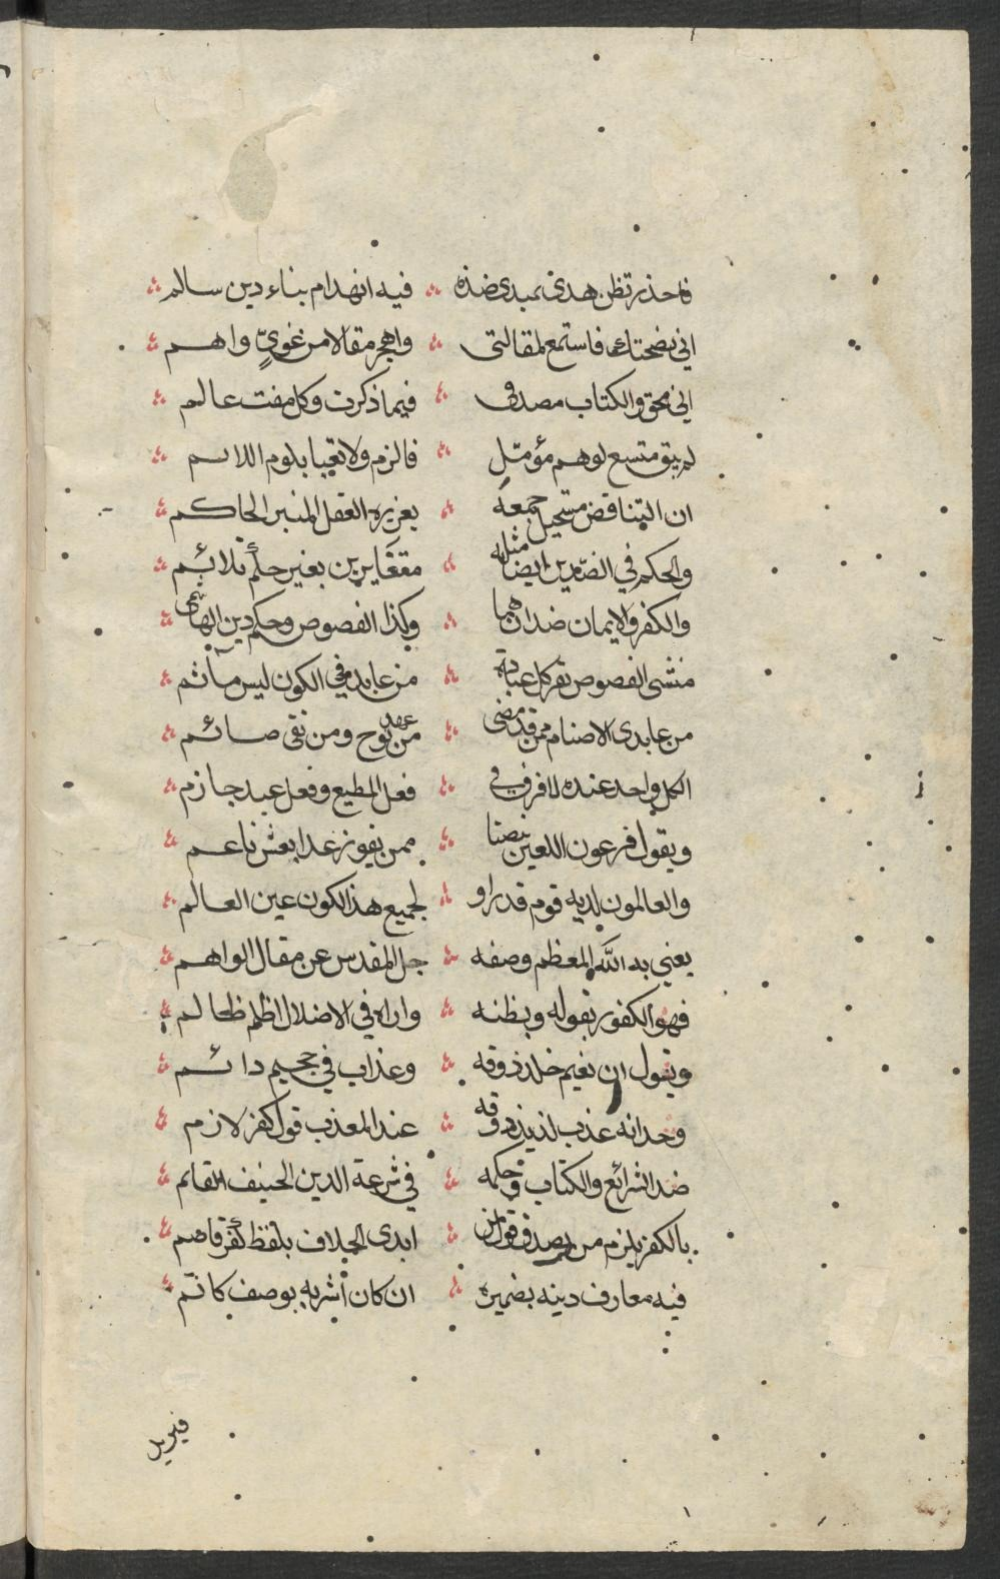 فاحذر تظن هدى بمبدى ضده فيه انهدام بناء دين سالم
انى نصحتك فاستمع لمقالتى واهجر مقالا من غوىٍّ واهم
انى محق والكتاب مصدقى فيما ذكرت وكل مفت عالم
لم يبق متسع لوهم مؤمّل فالزم ولا تعبا بلوم اللائم
ان التناقض مستحيل جمعه بغريزه العقل المنير الحاكم
والحكم في الضدين ايضا مثله بغير تلائم
والكفر والايمان ضدان هما وكذا الفصوص وحكم دين الهاشمى
منشى الفصوص يقر كل عبادة من عابد في الكون ليس مأثم
من عابدى الاصنام ممن قد مضى من عهد نوح ومن تقى صائم
الكل واحد عنده لا فرق في فعل المطيع وفعل عبد جازم
ويقول فرعون اللعين بنصنا ممن يفوز غدا بعيش ناعم
والعالمون لديه قوم قد راو لجميع هذا الكون عين العالم
يعنى به اللّه المعظم وصفه جل المقدس عن مقال الواهم
فهو الكفور بقوله وبظنه واراه في الاضلال اظلم ظالم
ويقول ان نعيم خلد ذوقه وعذاب في جحيم دائم
وحدانه عذب لذيذ ذوقه عند المعذب قول كفر لازم
ضد الشرائع والكتاب وحكمه في شرعة الدين الحنيف القائم
بالكفر يلزم من يصدق قول من ابدى الخلاف بلفظ كفر قاصم
فيه معارف دينه بضميره ان كان أشربه بوصف كاتم